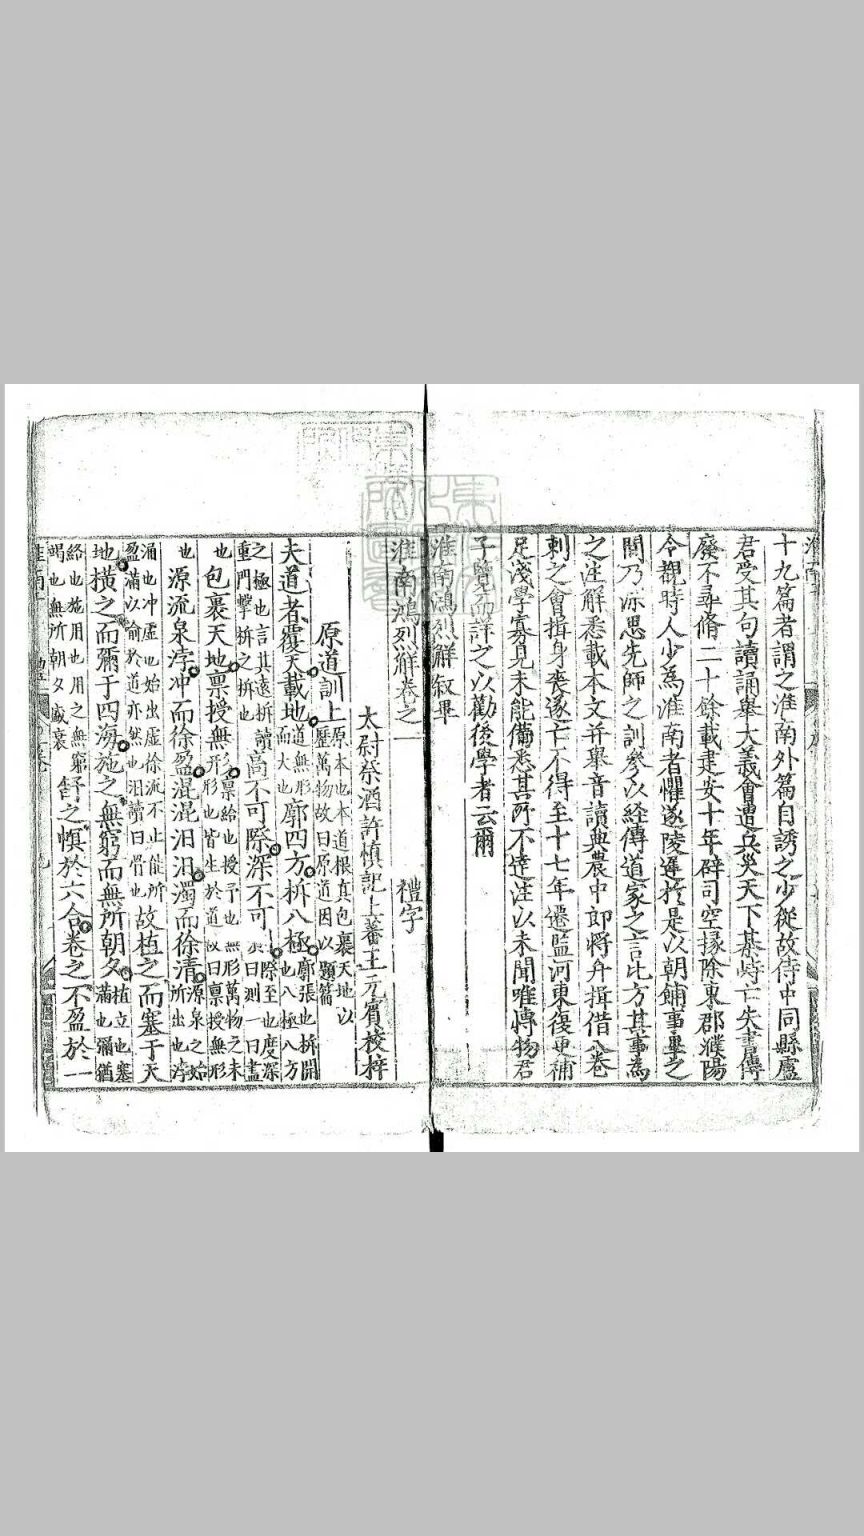 十九篇者謂之淮南外篇自誘之少從故侍中同縣盧
君受其句讀誦舉大義會遭兵災天下棊峙亡失書傳
廢不尋脩二十餘載建安十年辟司空掾除東郡濮陽
令覩時人少為淮南者懼遂陵遲於是以朝餔事畢之
間乃深思先師之訓參以經傳道家之言比方其事為
之注解悉載本文并舉音讀典農中郎將弁揖借八卷
刺之會揖身喪遂亡不得至十七年遷監河東復更補
足淺學寡見未能備悉其所不達注以未聞唯博物君
子覽而詳之以勸後學者云爾
淮南鴻烈解叙畢
淮南鴻烈解卷之一
太尉祭酒許慎記上 禮字
原道訓上 原本也本道根真包裹天地以
歷萬物故曰原道因以題篇
夫道者覆天載地 道無形
而大也 廓四方柝八極 廓張也柝開
也八極八方
之極也言其遠柝讀
重門擊柝之柝也 高不可際深不可 際至也度深
曰測一曰盡
也 包裹天地禀授無形 禀給也授予也無形萬物之未
形也皆生於道故曰禀授無形
也 源流泉浡冲而徐盈混混汩汩濁而徐清 源泉之始
所出也浡
涌也冲虛也始出虛徐流不止能所
盈滿以喻於道亦然也汩讀曰骨也 故植之而塞于天
地橫之而彌于四海施之無窮而無所朝夕 植立也塞
滿也彌猶
絡也施用也用之無窮
竭也無所朝夕盛衰 舒之幎於六合卷之不盈於一